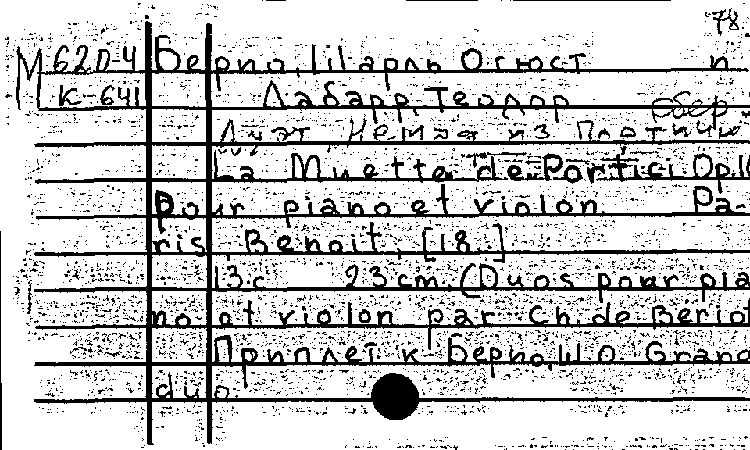 78
М 62Д-4 Берио, Шарль Огюст п
К-641 Лабарр, Теодор сбер
Дуэт Немая из Портичи
La Muette de Portici Op.
pour piano et violon. Pa-
ris, Benoit, [18..]
13 с 23 cm. (Duos pour pia
no et violon par Ch. de Beriot
Приплет к Берио, Ш.О. Grand
duo